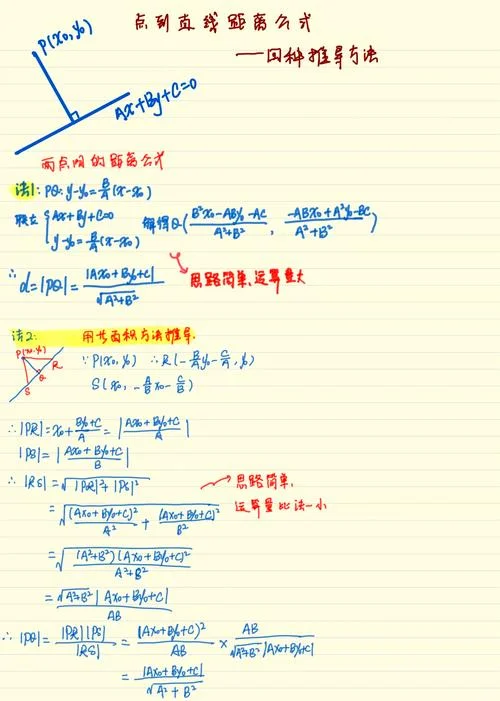 点到直线距离公式
——四种推导方法
P(x₀,y₀)
Ax+By+C=0
两点间的距离公式
法1: PQ: y-y₀=B/A(x-x₀)
联立 { Ax+By+C=0
y-y₀=B/A(x-x₀)
解得Q( (B²x₀-ABy₀-AC)/(A²+B²) , (-ABx₀+A²y₀-BC)/(A²+B²) )
∴ d=|PQ|=|Ax₀+By₀+C|/√(A²+B²)
思路简单,运算量大
法2: 用等面积方法推导.
P(x₀,y₀)
R
Q
S
∵ P(x₀,y₀) ∴ R(-B/A y₀-C/A, y₀)
S(x₀, -A/B x₀-C/B)
∴ |PR|=x₀+(By₀+C)/A=|(Ax₀+By₀+C)/A|
|PS|=|(Ax₀+By₀+C)/B|
∴ |RS|=√(|PR|²+|PS|²)
=√((Ax₀+By₀+C)²/A²+(Ax₀+By₀+C)²/B²)
=√((A²+B²)(Ax₀+By₀+C)²/A²B²)
=√(A²+B²)|Ax₀+By₀+C|/AB
思路简单,
运算量比法一小
∴ |PQ|=|PR||PS|/|RS|=(Ax₀+By₀+C)²/AB × AB/(√(A²+B²)|Ax₀+By₀+C|)
=|Ax₀+By₀+C|/√(A²+B²)